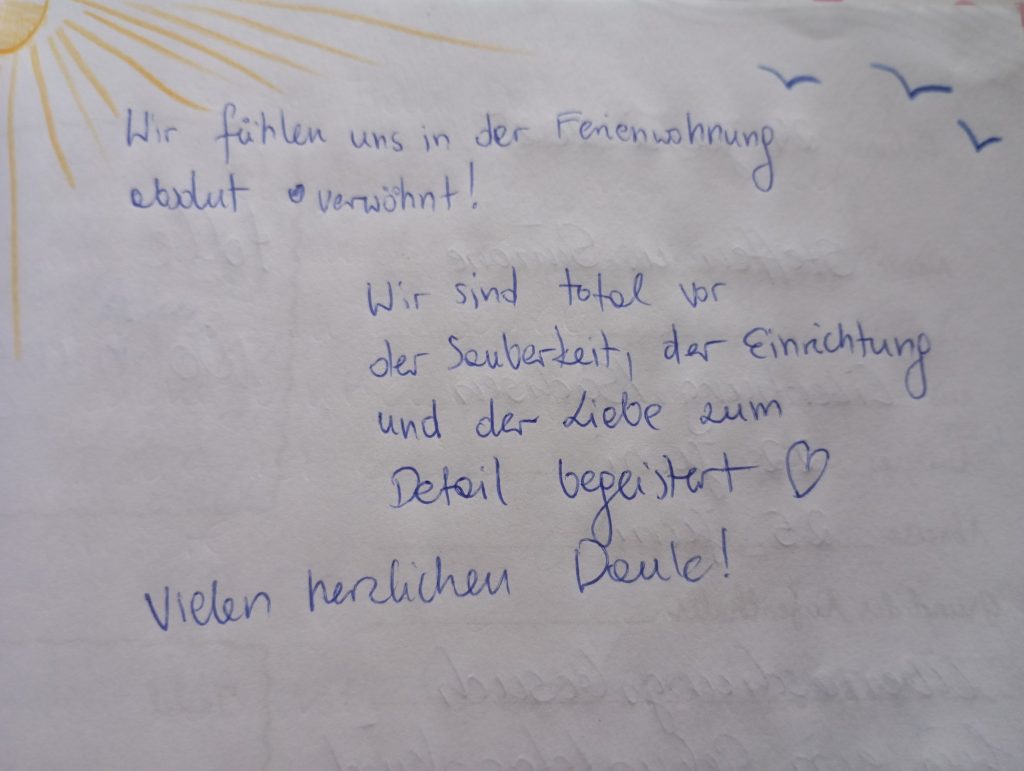 Wir fühlen uns in der Ferienwohnung
absolut verwöhnt!
Wir sind total vor
der Sauberkeit, der Einrichtung
und der Liebe zum
Detail begeistert ♡
Vielen herzlichen Dank!